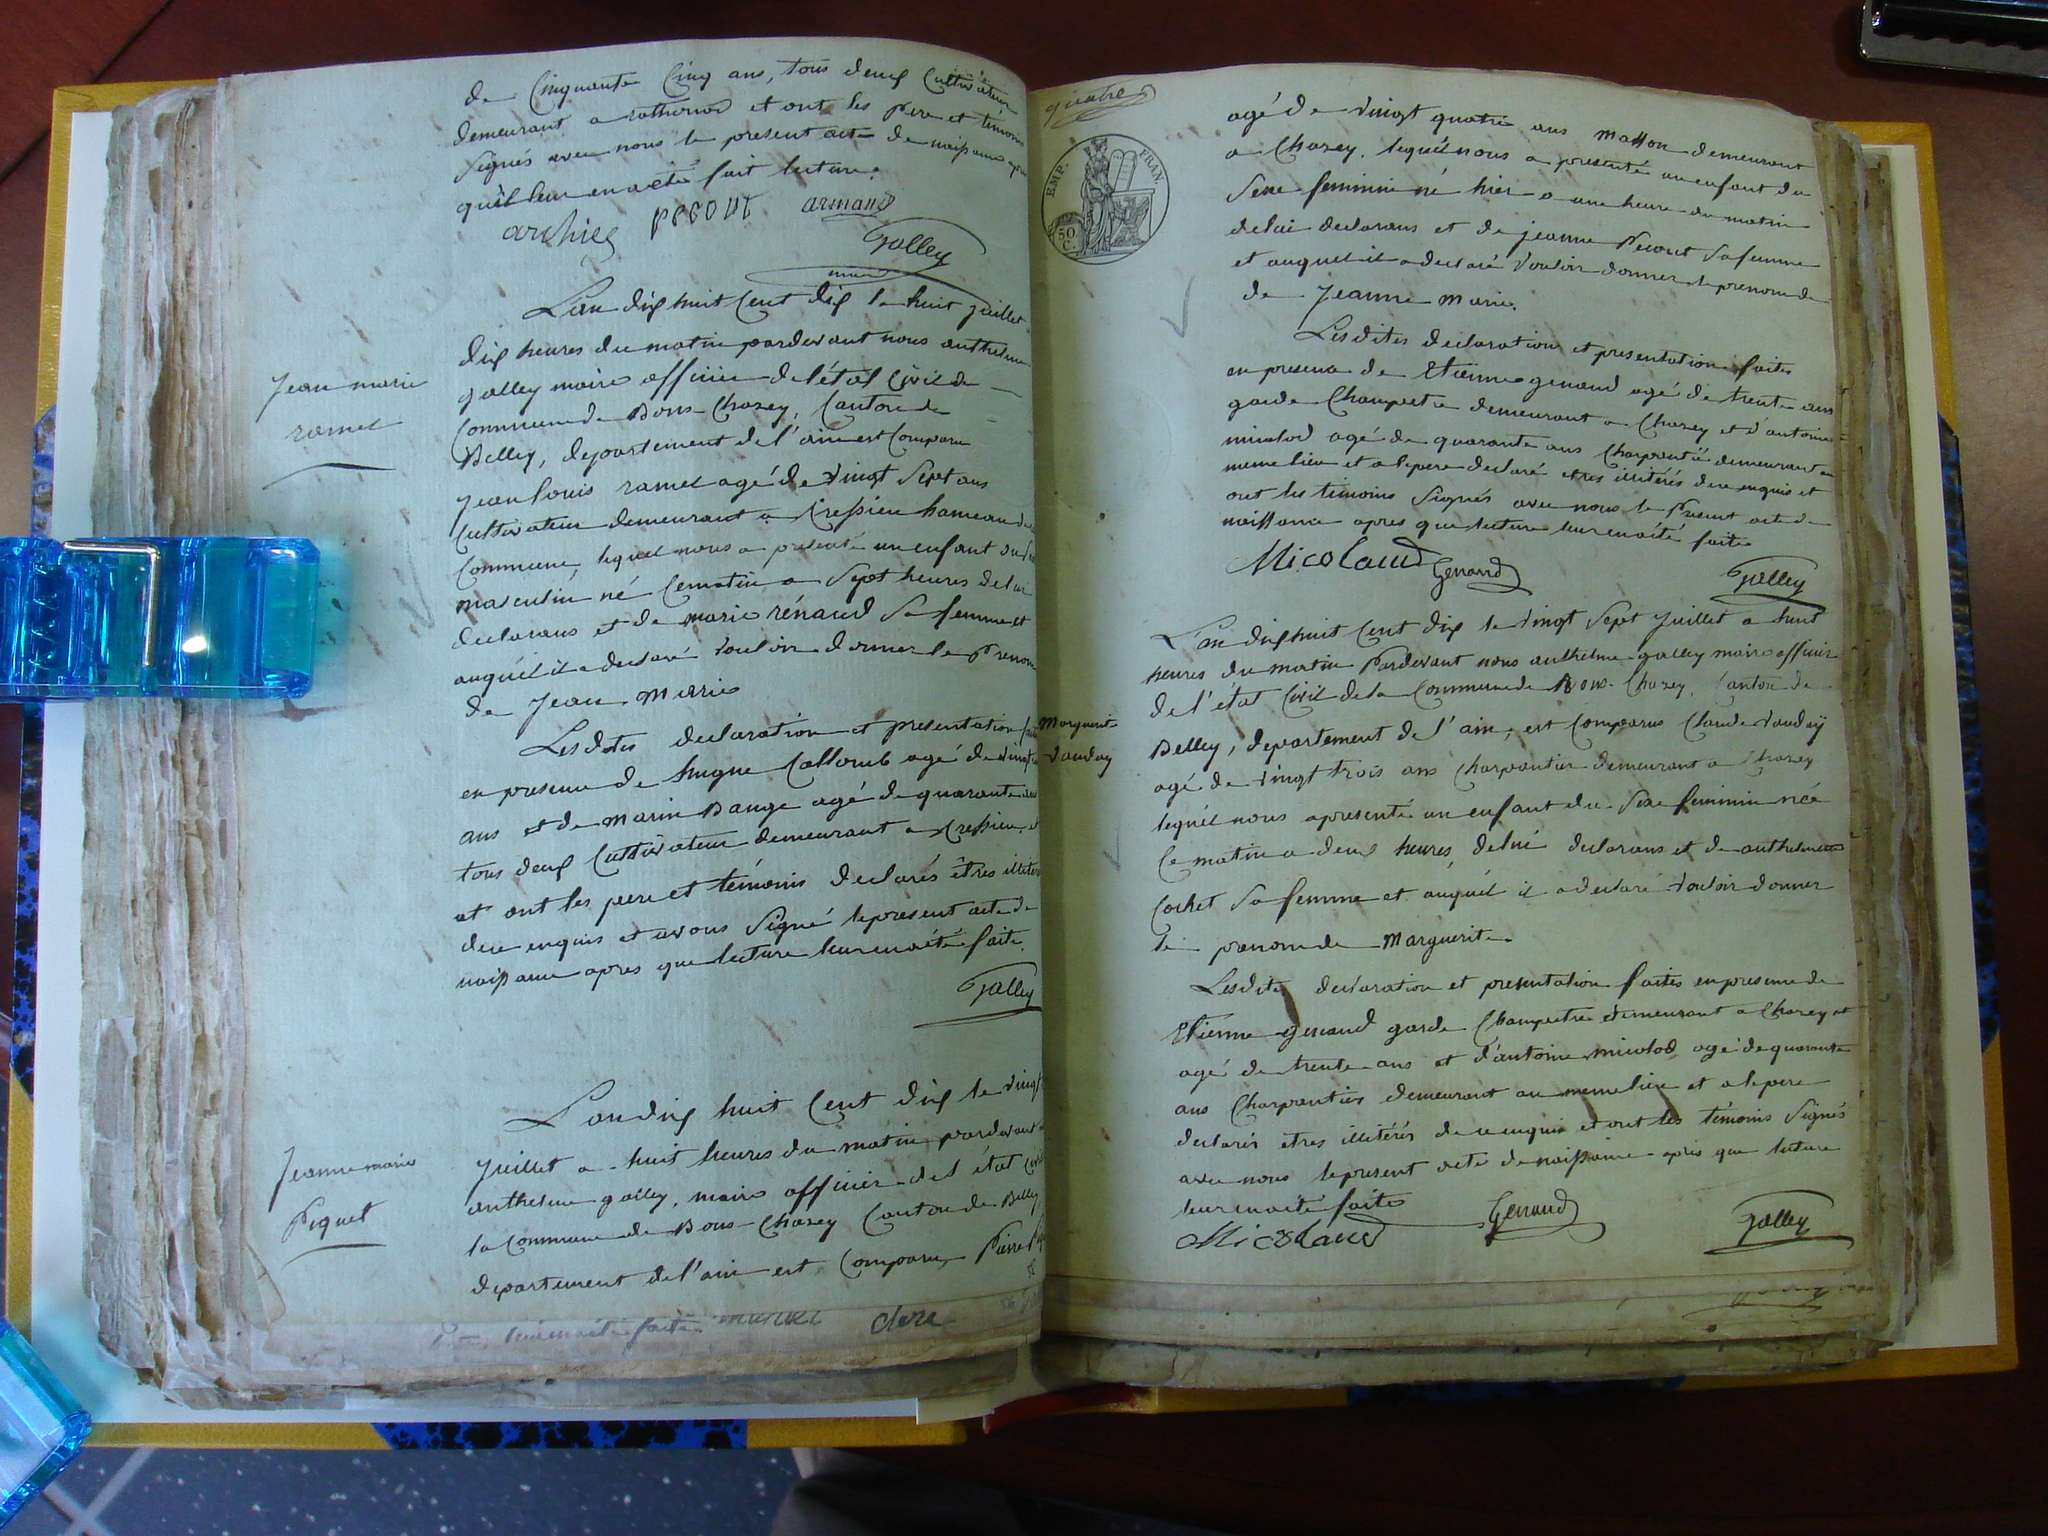 de Cinquante Cinq ans, tous deux Cultivateur
demeurant a rothonod et ont les pere et témoins
Signés avec nous le present acte de naissance apres
qu'il leur en a été fait lecture.
pecout armand
Galley
maire
Jean marie
ramel
L'an dix huit Cent dix le huit juillet
dix heures du matin pardevant nous anthelme
galley maire officier de l'état Civil de
Commune de Bons-Chazey, Canton de
Belley, departement de l'ain est Comparu
Jean Louis ramel agé de vingt Sept ans
Cultivateur demeurant a Cressieu hameau de
Commune, lequel nous a presenté un enfant du
masculin né Cematin a Sept heures de lui
declarans et de marie rénaud Sa femme et
auquél il a declaré vouloir donner le Prenom
de Jean Marie
Lesdites declaration et presentation
en presence de hugue Collomb agé de vingt
ans et de marin Bange agé de quarante
tous deux Cultivateur demeurant a Cressieu et
et ont les pere et témoins declarés êtres illiterés
de ce enquis et avons Signé le present acte de
naissance apres que lecture leur en a été faite.
Galley
Jeanne marie
Piquet
L'an dix huit Cent dix le vingt
Juillet a huit heures du matin pardevant
anthelme galley, maire officier de l'état Civil
la Commune de Bons-Chazey Canton de Belley
departement de l'ain est Comparu Pierre
leur en a été faite
clerc
quatre
EMP. FRAN.
50 C.
agé de vingt quatre ans Masson demeurant
a Chazey, lequél nous a presenté un enfant du
Sexe feminin né hier a une heure du matin
de lui declarans et de jeanne Pecout Sa femme
et auquel il a declaré vouloir donner le prenom de
de Jeanne Marie.
Lesdites declaration et presentation faites
en presence de Etienne genaud agé de trente ans
garde Champetre demeurant a Chazey et d'antoine
micolod agé de quarante ans Charpentié demeurant au
meme lieu et a le pere declaré etres illitérés de ce enquis et
ont les témoins Signés avec nous le Present acte de
naissance apres que lecture leur en a été faite
Micolaud Genaud
Galley
Marguerite
Vauday
L'an dix huit Cent dix le vingt Sept Juillet a huit
heures du matin Pardevant nous anthelme galley maire officier
de l'état Civil de la Commune de Bons-Chazey, Canton de
Belley, departement de l'ain, est Comparus Claude Vauday
agé de vingt trois ans Charpantier demeurant a Chazey
lequél nous a presenté un enfant du Sexe feminin née
Ce matin a deux heures, de lui declarans et de anthelmette
Cochet Sa femme et auquél il a declaré vouloir donner
le prenom de Marguerite.
Lesdites declaration et presentation faites en presence de
Etienne genaud garde Champetre demeurant a Chazey et
agé de trente ans et d'antoine micolod agé de quarante
ans Charpentier demeurant au meme lieu et a le pere
declarés etres illitérés de ce enquis et ont les témoins Signés
avec nous le present acte de naissance apres que lecture
leur en a été faite
Micolaud Genaud Galley